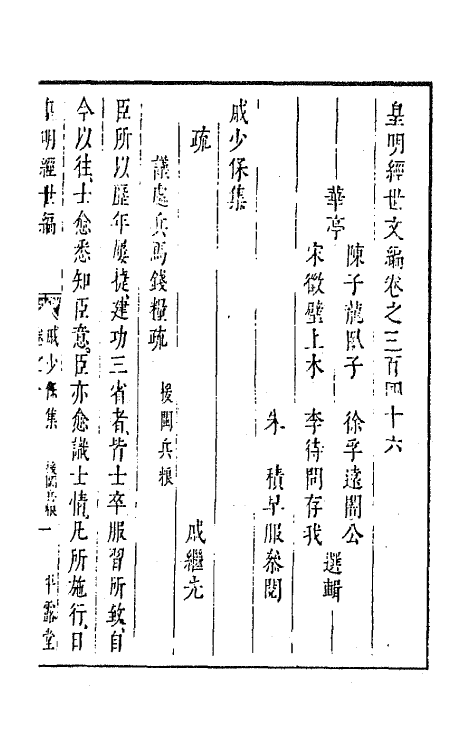 皇明經世文編卷之三百四十六
華亭
陳子龍臥子 徐孚遠闇公
宋徵璧上木 李待問存我 選輯
朱積早服叅閱
戚少保集
戚繼光
疏
議處兵馬錢糧疏 援閩兵粮
臣所以歷年屢捷建功三省者、皆士卒服習所致、自
今以往、士愈悉知臣意、臣亦愈識士情、凡所施行、日
皇明經世編 戚少保集 援閩兵粮 一 平露堂